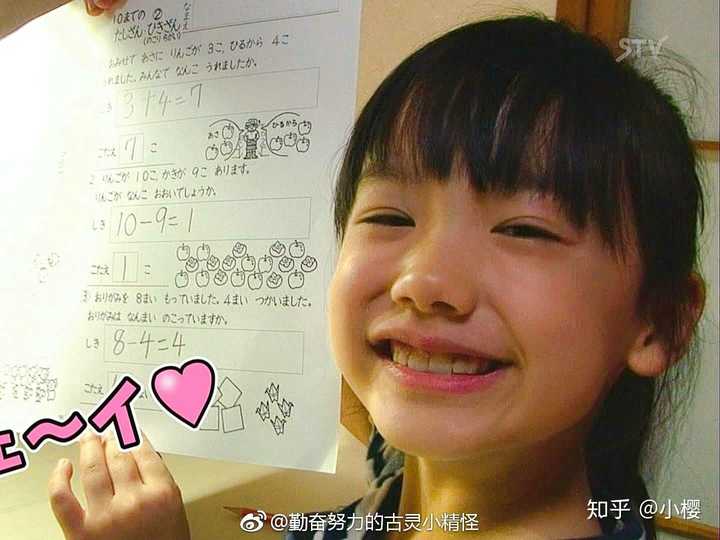 10までの ②
なまえ
たしざん・ひきざん
(のこりちがい)
おみせで あさに りんごが 3こ, ひるから 4こ
うれました。みんなで なんこ うれましたか。
しき 3+4=7
あさ
ひるから
こたえ 7 こ
2 りんごが 10こ, かきが 9こ あります。
りんごが なんこ おおいでしょうか。
しき 10-9=1
こたえ 1 こ
3 おりがみを 8まい もっていました。4まい つかいました。
おりがみは なんまい のこっていますか。
しき 8-4=4
こたえ
ェ〜イ
STV
@勤奋努力的古灵小精怪
知乎 @小樱